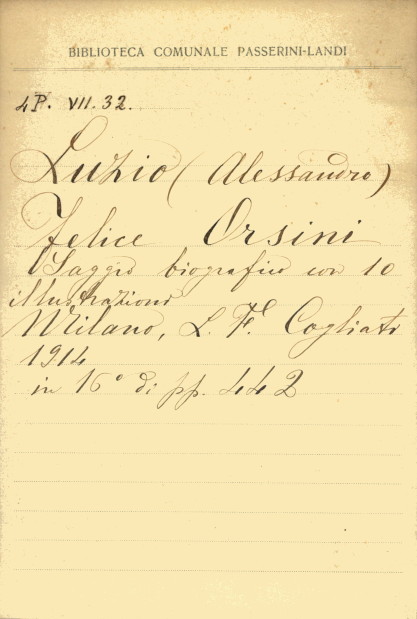 BIBLIOTECA COMUNALE PASSERINI-LANDI
4P. VII. 32.
Luzio (Alessandro)
Felice Orsini
Saggio biografico con 10
illustrazioni
Milano, L. F. Cogliati
1914
in 16° di pp. 442